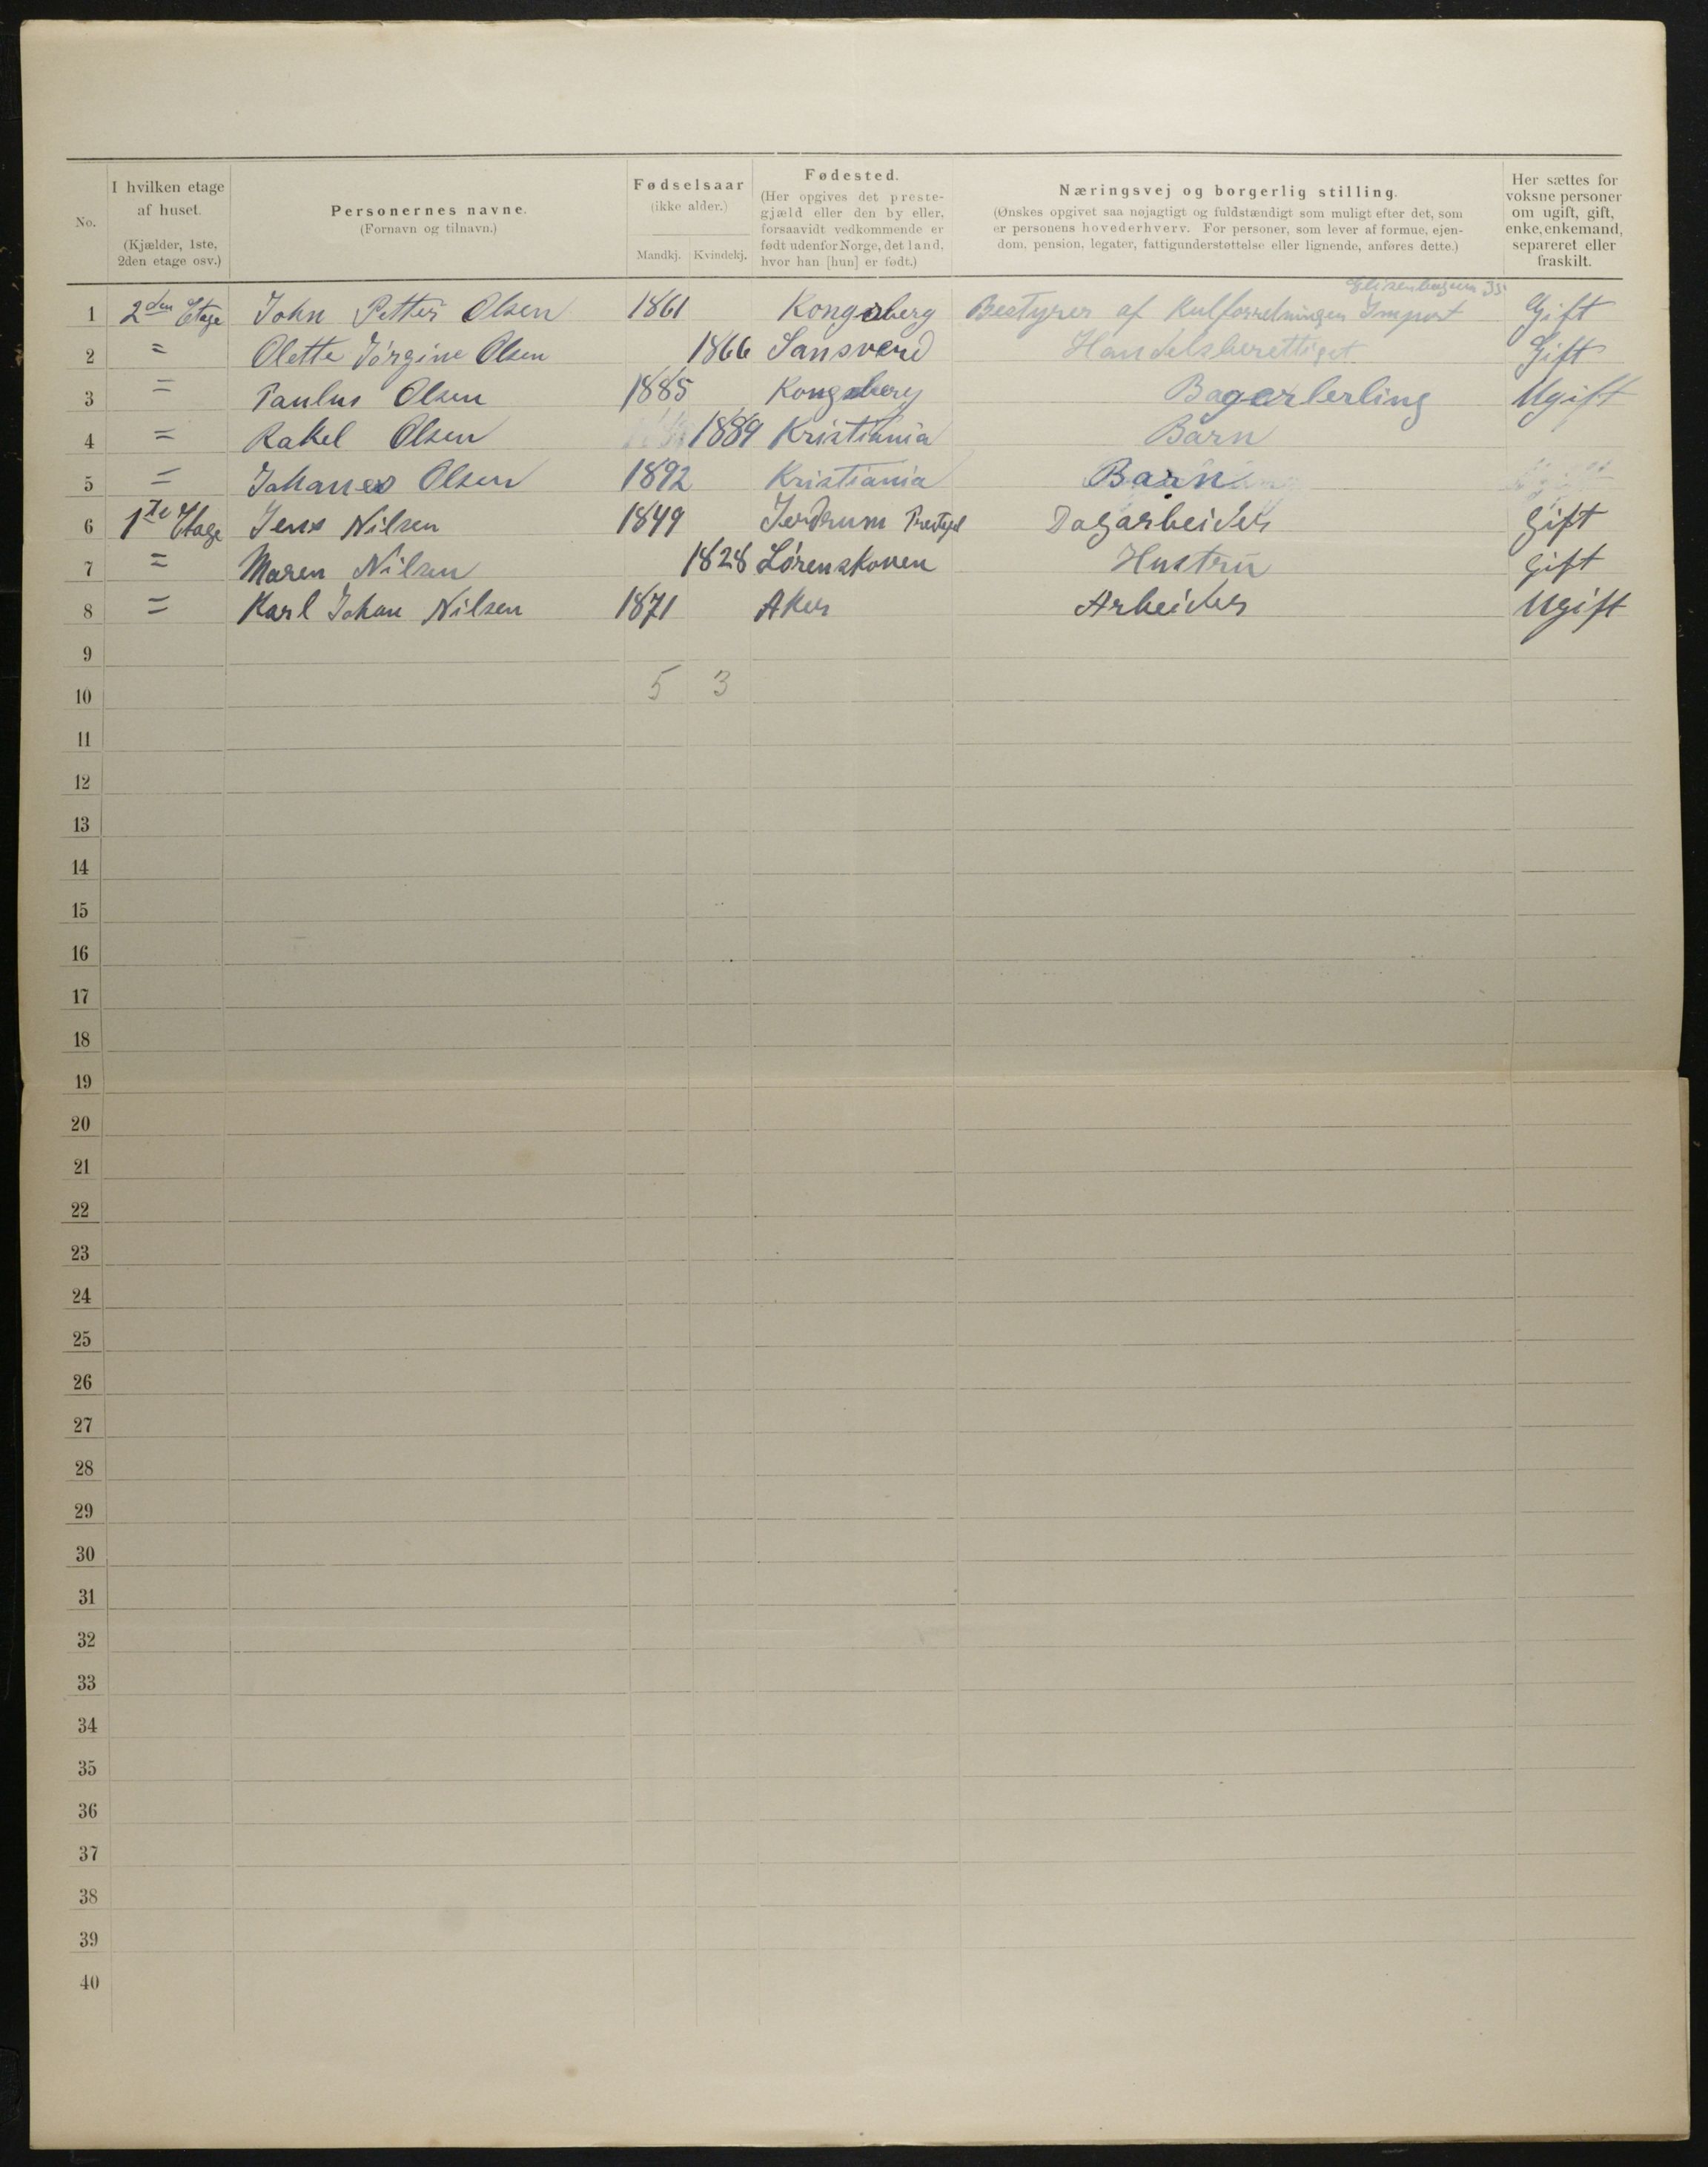 No.
I hvilken etage af huset.
(Kjælder, 1ste, 2den etage osv.)
Personernes navne.
(Fornavn og tilnavn.)
Fødselsaar
(ikke alder.)
Mandkj. Kvindekj.
Fødested.
(Her opgives det prestegjæld eller den by eller, forsaavidt vedkommende er født udenfor Norge, det land, hvor han [hun] er født.)
Næringsvej og borgerlig stilling.
(Ønskes opgivet saa nøjagtigt og fuldstændigt som muligt efter det, som er personens hovederhverv. For personer, som lever af formue, ejendom, pension, legater, fattigunderstøttelse eller lignende, anføres dette.)
Her sættes for voksne personer om ugift, gift, enke, enkemand, separeret eller fraskilt.
1 2den Etage John Petter Olsen 1861 Kongsberg Bestyrer af Kulforretningen Import Gift
2 = Olette Jørgine Olsen 1866 Sansverd Handelsberettiget Gift
3 = Paulus Olsen 1885 Kongsberg Bagerlerling Ugift
4 = Rakel Olsen 1889 Kristiania Barn
5 = Johanes Olsen 1892 Kristiania Barn
6 1ste Etage Jens Nilsen 1849 Jerdrum Gift Dagarbeider
7 = Maren Nilsen 1828 Lørenskoven Hustru gift
8 = Karl Johan Nilsen 1871 Aker Arbeider Ugift
9
10 5 3
11
12
13
14
15
16
17
18
19
20
21
22
23
24
25
26
27
28
29
30
31
32
33
34
35
36
37
38
39
40